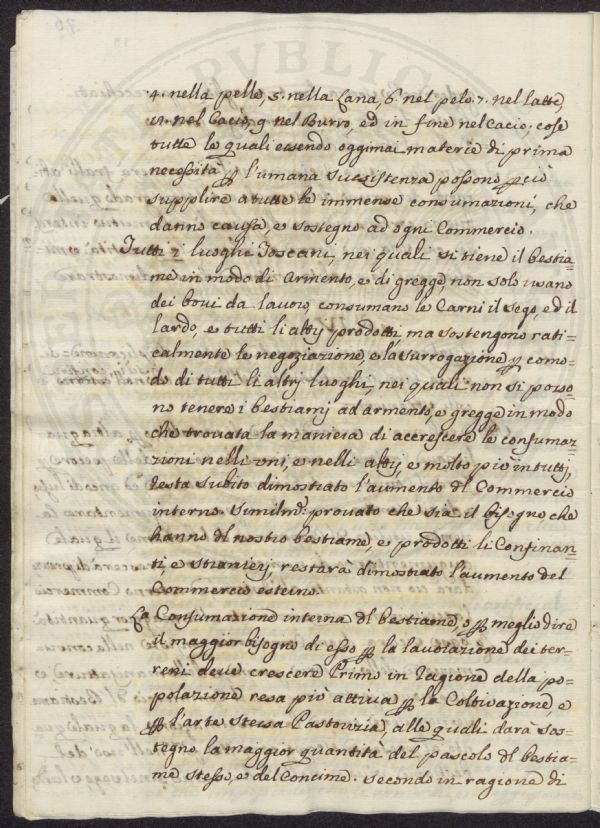 4. nella pelle, 5. nella Lana, 6. nel pelo. 7. nel latte,
nel Cacio, 9 nel Burro, ed in fine nel Cacio; cose
tutte le quali essendo oggimai materie di prima
necessità ꝑ l'umana sussistenza possono ꝑciò
supplire a tutte le immense consumazioni, che
danno causa, e sostegno ad ogni Commercio.
Tutti i luoghi Toscani, nei quali si tiene il bestia-
me in modo di Armento, e di gregge, non solo usano
dei bovi da lavoro, consumano le Carni il sego, ed il
lardo, e tutti li altrj prodotti, ma sostengono rati-
calmente le negoziazione, e la surrogazione ꝑ como-
do di tutti li altrj luoghi, nei quali non si posso-
no tenere i bestiamj ad armento, e gregge in modo
che trovata la maniera di accrescere le consumaz-
zioni nelli uni, e nelli altrj, e molto più in tuttj,
resta subito dimostrato l'aumento dl Commercio
interno. Similmᵉ: provato che sia il bisogno, che
hanno dl nostro bestiame, e prodotti li Confinan-
ti, e stranierj, restarà dimostrato l'aumento del
Commercio esterno.
La Consumazione interna dl bestiame, o ꝑ meglio dire
il maggior bisogno di esso ꝑ la lavorazione dei ter-
reni deve crescere Primo in ragione della po-
polazione resa più attiva ꝑ la Coltivazione, e
ꝑ l'arte stessa Pastorizia, alle quali darà sos-
tegno la maggior quantità del pascolo dl bestia-
me stesso, e del Concime. secondo in ragione di